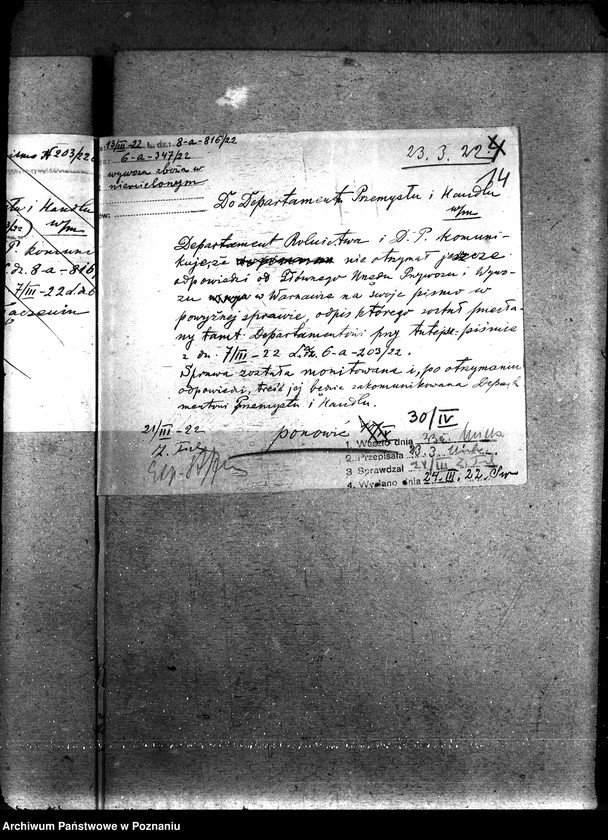 ismo № 203/22
tu i Handlu
w/m
P. komuni
dz. 8-a-816/
7/III-22 L.dz. 6
13/III-22 L. dz.: 8-a-816/22
6-a-347/22
wywozu zboża w
niemielonym
23. 3. 22
14
Do Departamentu Przemysłu i Handlu
w/m
Departament Rolnictwa i D. P. komuni-
kuje, że nie otrzymał jeszcze
odpowiedzi od Głównego Urzędu Przywozu i Wywo-
zu w Warszawie na swoje pismo w
powyższej sprawie, odpis którego został przesła-
ny tamt. Departamentowi przy tutejsz. piśmie
z dn. 7/III-22 L.dz. 6-a-203/22.
Sprawa została monitowana i, po otrzymaniu
odpowiedzi, treść jej będzie zakomunikowana Departa-
mentowi Przemysłu i Handlu.
30/IV
21/III-22
ponowić
1. Weszło dnia
2. Przepisała 23.3.
3 Sprawdzał 24/III
4. Wysłano dnia 24. III. 22.
Archiwum Państwowe w Poznaniu